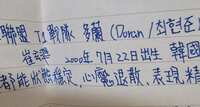 聯盟 T1 戰隊 多蘭 (Doran / 최현준
崔 2000年 7月22日出生 韓國
都能狀態穩定、心態退散、表現精